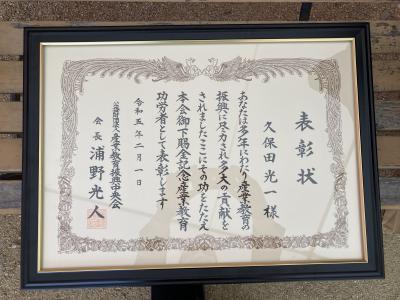 表彰状
久保田光一様
あなたは多年にわたり産業教育の
振興に尽力され多大の貢献を
されましたここにその功をたたえ
本会御下賜金記念産業教育
功労者として表彰します
令和五年二月一日
公益財団法人産業教育振興中央会
会長浦野光人